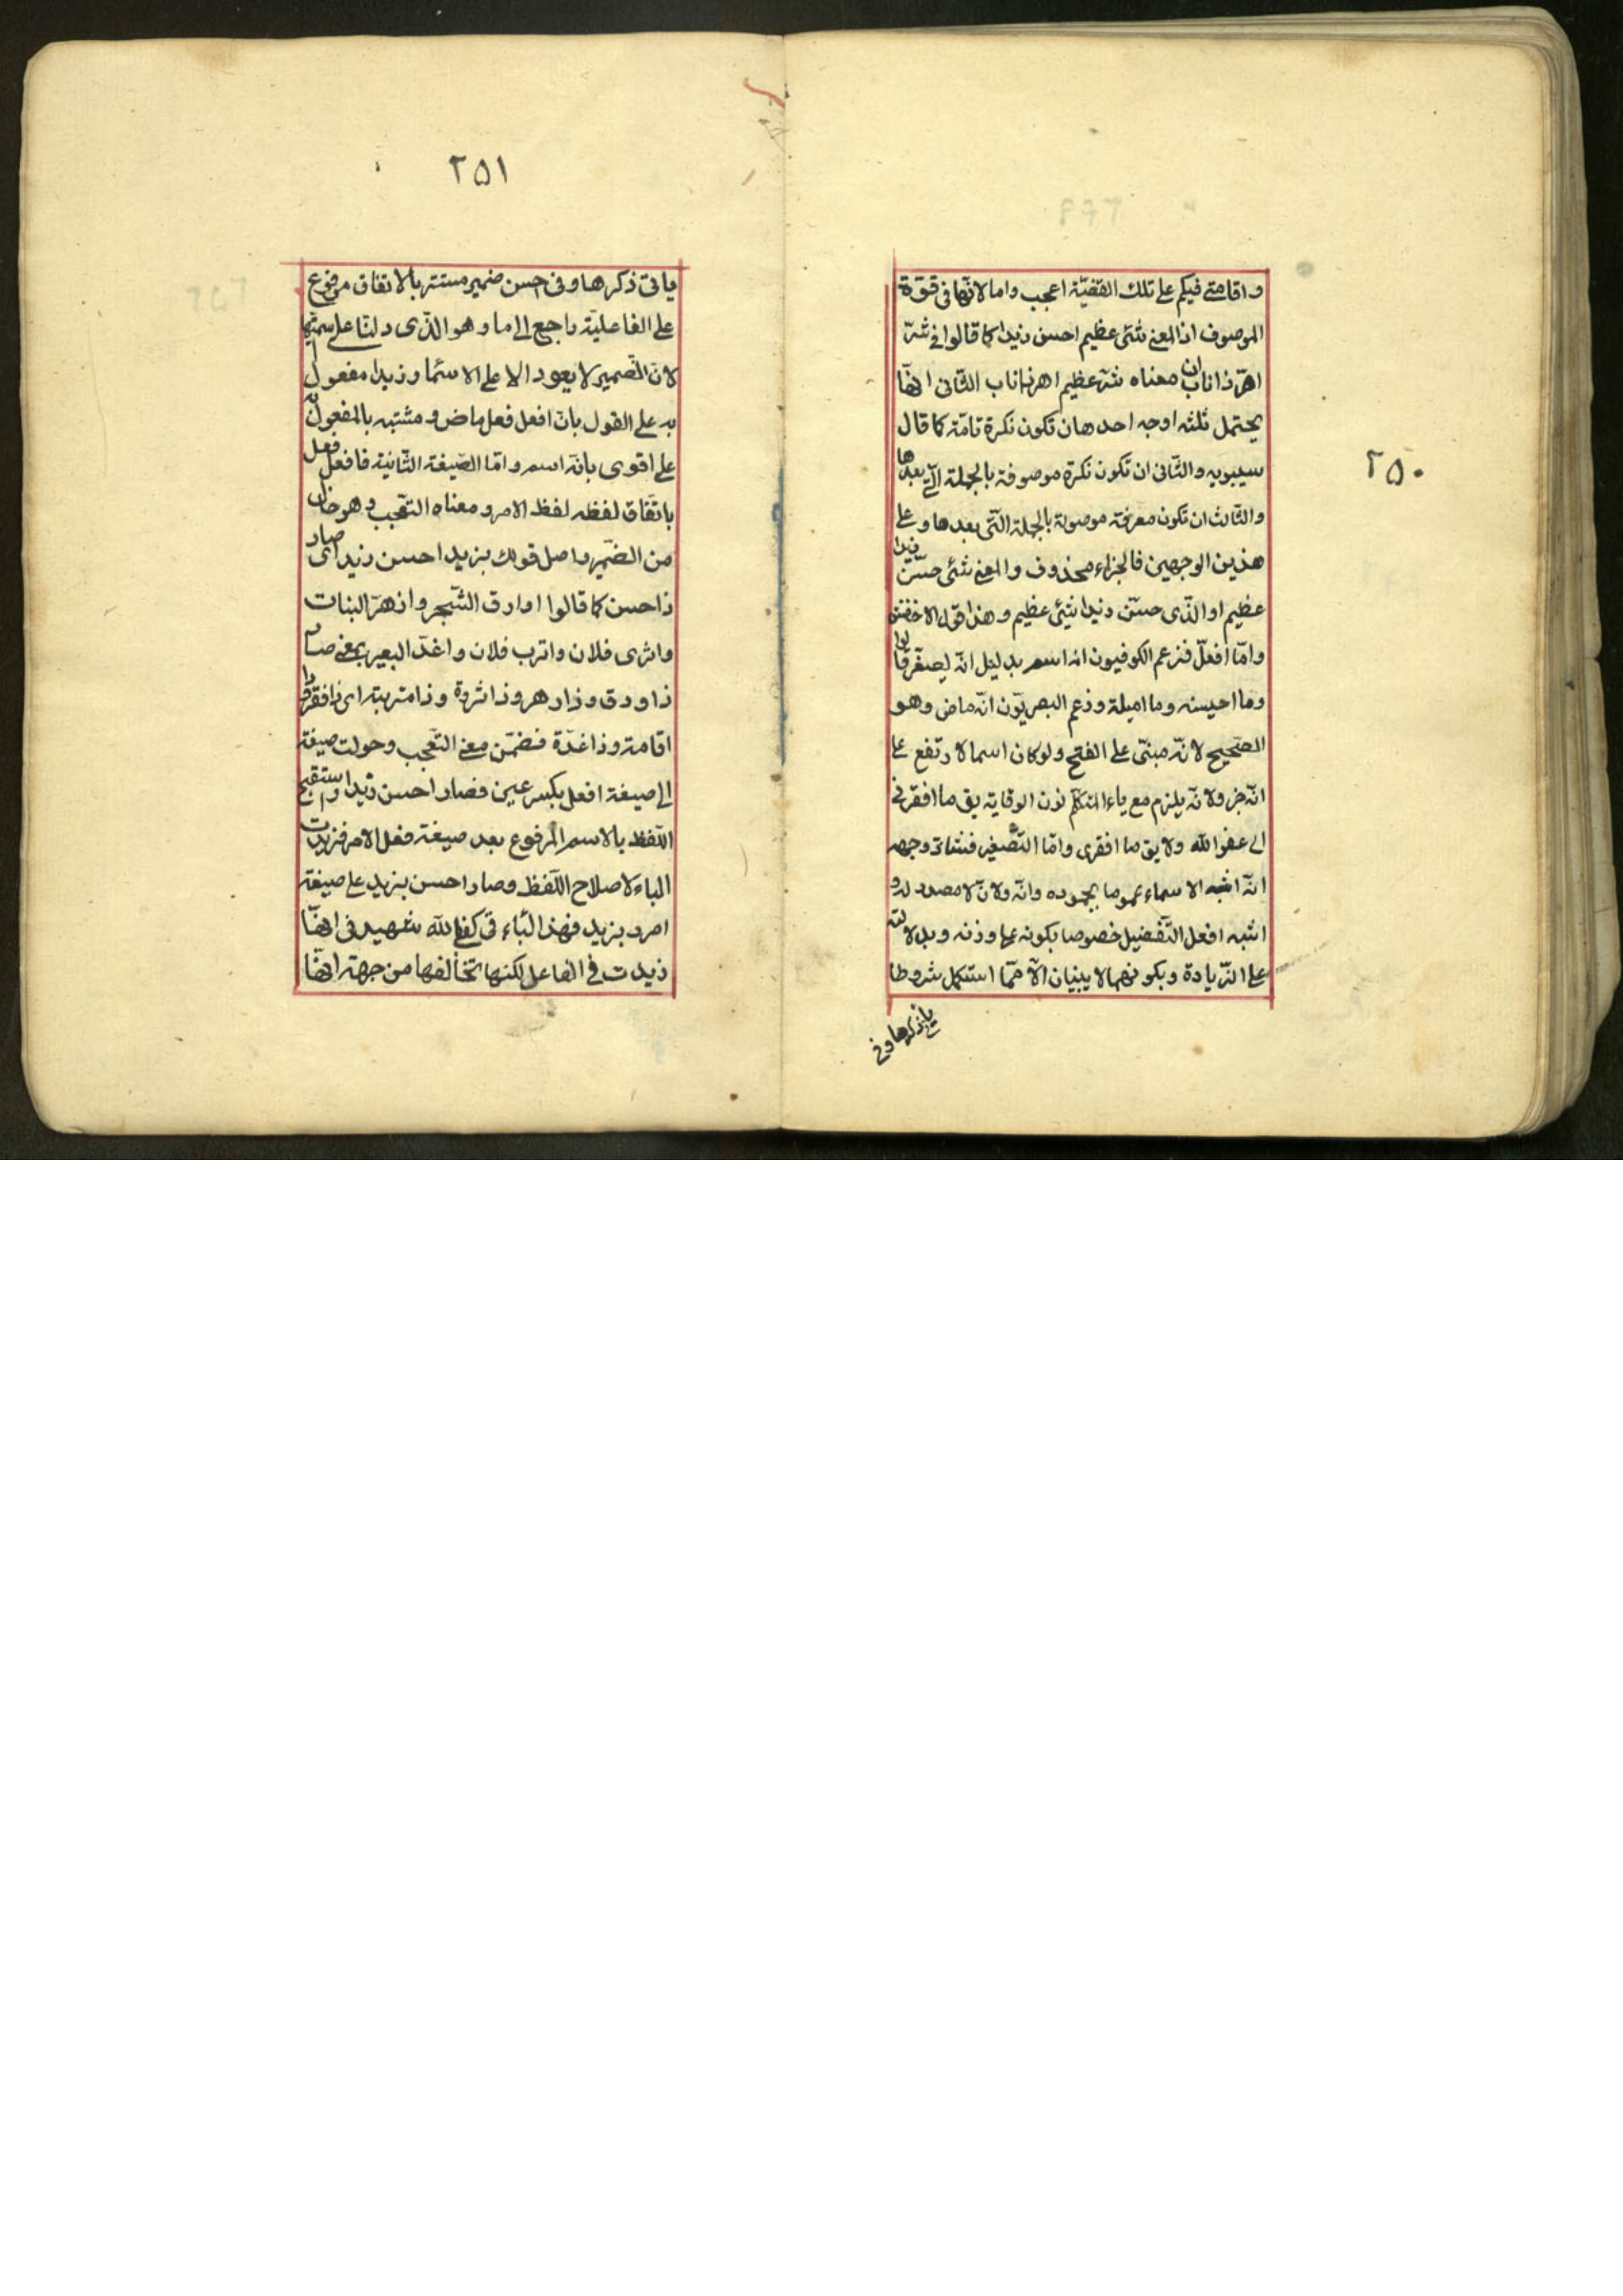 ٢٥٠
واقامتى فيكم على تلك القضيّة اعجب واما لانّها فى قوّة
الموصوف اذ المعنى شئ عظيم احسن زيدا كما قالوا فى شرّ
اهرّ ذا ناب ان معناه شرّ عظيم اهر ذا ناب الثّانى انها
يحتمل ثلثه اوجه احدها ن تكون نكرة تامّة كما قال
سيبويه والثّانى ان تكون نكرة موصوفة بالجملة الّتى بعدها
والثّالث ان تكون معرفة موصولة بالجملة الّتى بعدها وعلى
هذين الوجهين فالجزاء محذوف والمعنى شئ حسّن زيدا
عظيم او الّذى حسّن زيدا شئ عظيم وهذا قول الاخفش
وامّا افعلّ فزعم الكوفيون انه اسم بدليل انّه يصغّر قالوا
وما احيسنه وما اميلة وزعم البصريّون انّه ماض وهو
الصّحيح لانّه مبنىّ على الفتح ولو كان اسما لارتفع على
انّه خبر ولانّه يلزم مع ياء المتكلّم نون الوقاية يق ما افقرنى
الى عفو الله ولا يق ما افقرى وامّا التّصغير فشاذّ وجهه
انّه اشبه الاسماء عموما بجموده وانّه ولانّ لا مصدر له و
اشبه افعل التّفضيل خصوصا بكونه على وزنه وبدلالته
على الزّيادة وبكونهما لا يبنيان الّا ممّا استكمل شروطا
يأتى ذكرها وفى
٢٥١
ياتى ذكرها وفى احسن ضمير مستتر بالاتفاق مرفوع
على الفاعليّة راجع الى ما وهو الّذى دلنّا على اسميّتها
لانّ الضّمير لا يعود الا على الاسمّا وزيدا مفعول
به على القول بانّ افعل فعل ماض ومشتبه بالمفعول به
على اقوى بانّه اسم وامّا الصّيغة الثّانية فافعل فعل
باتّفاق لفظه لفظ الامر ومعناه التّعجب وهو خال
من الضّمير واصل قولك بزيد احسن زيد اى صار
ذا حسن كما قالوا اوارق الشّجر وازهرّ البنات
واثرى فلان واترب فلان واغدّ البعير بمعنى صار
ذا ورق وذا زهر وذا ثروة وذا متربته اى ذا فقر و
اقامة وذا غدّة فضمّن معنى التّعجب وحولت صيغة
الى صيغة افعل بكسر عين فصار احسن زيدا واستقبح
اللّفظ بالاسم المرفوع بعد صيغة فعل الامر فزيدت
الباء لاصلاح اللّفظ وصار احسن بزيد على صيغة
امرر بزيد فهذا البّاء فى كفى بالله شهيد فى انّها
زيدت فى الفاعل لكنها تخالفها من جهة انّها